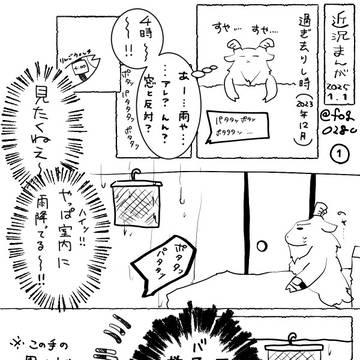 近況まんが
2025
1.1
@fog
0280
①
過ぎ去りし時
(2023年12月)
すや…
すや…
パタタッポタッ
ポタタタッ…
あー…雨や…
…アレ?んん?
窓と反対?
4時
〜!!
ポタッ
ポタッ
パタタッ
見たくねえ〜
ハイッ!!
やっぱ室内に
雨降てる〜!!
ポタタッ
パタタッ
バ
※この手の